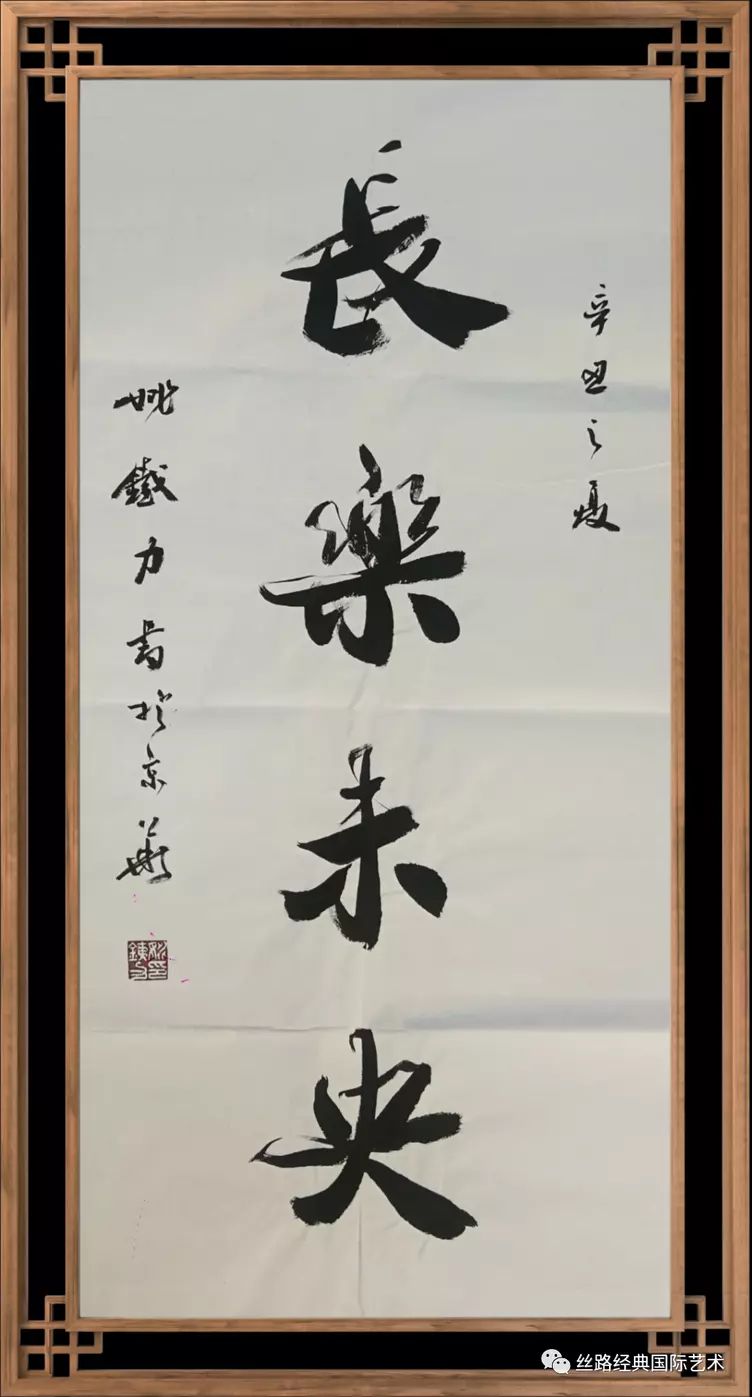 辛丑之夏
長樂未央
姚鐵力書於京華
丝路经典国际艺术